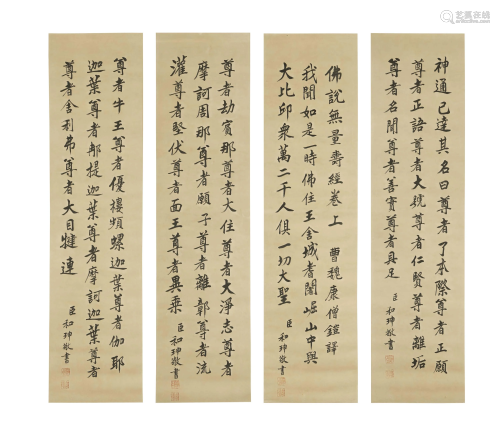 艺狐在线
神通已達其名曰尊者了本際尊者正願
尊者正語尊者大號尊者仁賢尊者離垢
尊者名聞尊者善實尊者具足
臣和珅敬書
佛說無量壽經卷上 曹魏康僧鎧譯
我聞如是一時佛住王舍城耆闍崛山中與
大比邱衆萬二千人俱一切大聖
臣和珅敬書
尊者劫賓那尊者大住尊者大淨志尊者
摩訶周那尊者願子尊者離彰尊者流
灌尊者堅伏尊者面王尊者異乘
臣和珅敬書
尊者牛王尊者優樓頻螺迦葉尊者伽耶
迦葉尊者那提迦葉尊者摩訶迦葉尊者
尊者舍利弗尊者大目犍連
臣和珅敬書